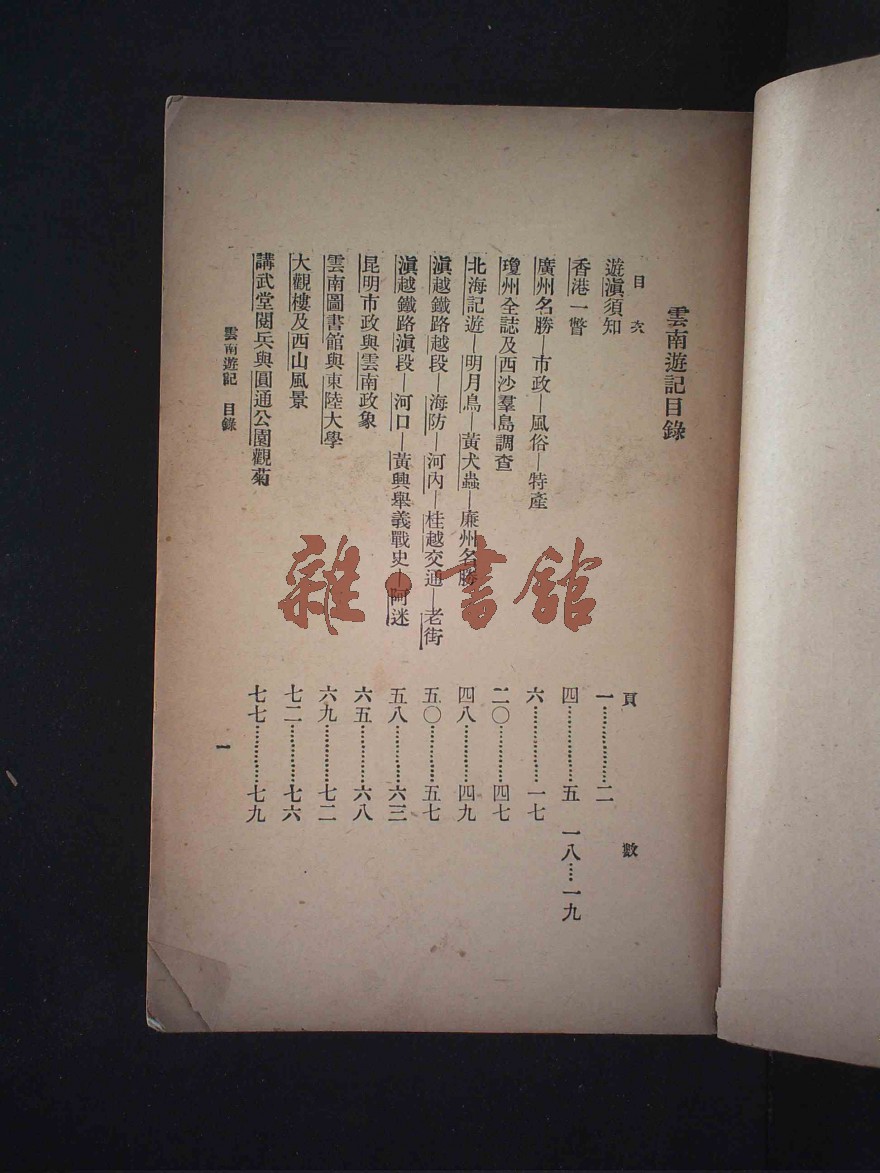 雲南遊記目錄
目次 頁數
遊滇須知 一………………二
香港一瞥 四…………五 一八……一九
廣州名勝—市政—風俗—特產 六…………一七
瓊州全誌及西沙羣島調查 二〇…………四七
北海記遊—明月鳥—黃犬蟲—廉州名勝 四八…………四九
滇越鐵路越段—海防—河內—桂越交通—老街 五〇…………五七
滇越鐵路滇段—河口—黃興舉義戰史—阿迷 五八…………六三
昆明市政與雲南政象 六五…………六八
雲南圖書館與東陸大學 六九…………七二
大觀樓及西山風景 七二…………七六
講武堂閱兵與圓通公園觀菊 七七…………七九
雲南遊記 目錄 一
雜·書館